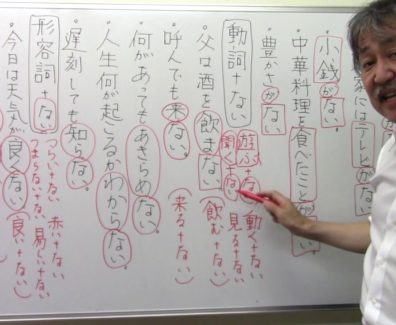 家にはテレビがない。
・小銭がない。
・中華料理を食べたことがない。
・豊かさがない
動詞＋ない
遊ぶ＋ない 動く＋ない
聞く＋ない 見る＋ない
・父は酒を飲まない。(飲む＋ない)
・呼んでも来ない。(来る＋ない)
・何があってもあきらめない。
・人生何が起こるかわからない。
・遅刻しても知らない。
形容詞＋ない
つらい＋ない 赤い＋ない
つまらない＋ない 易しい＋ない
・今日は天気が良くない(良い＋ない)